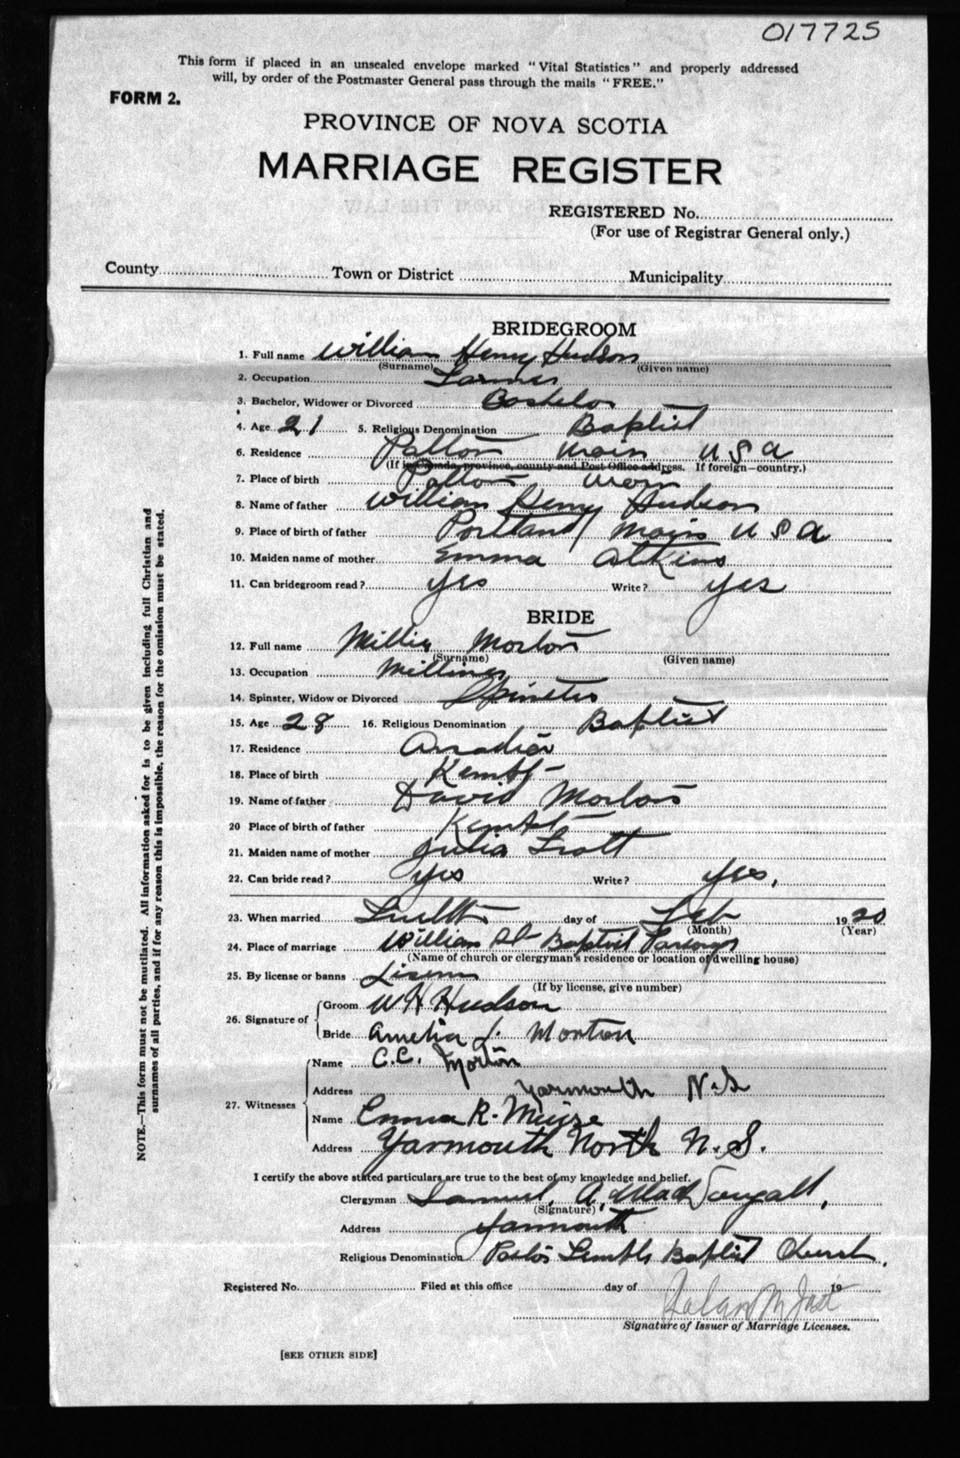 017725
This form if placed in an unsealed envelope marked "Vital Statistics" and properly addressed
will, by order of the Postmaster General pass through the mails "FREE."
FORM 2.
PROVINCE OF NOVA SCOTIA
MARRIAGE REGISTER
REGISTERED No.
(For use of Registrar General only.)
County Town or District Municipality
BRIDEGROOM
1. Full name William Henry Hudson
(Surname) (Given name)
2. Occupation Farmer
3. Bachelor, Widower or Divorced Bachelor
4. Age 21 5. Religious Denomination Baptist
6. Residence Patton Main U S A
(If in Canada, province, county and Post Office address. If foreign—country.)
7. Place of birth Patton Main
8. Name of father William Henry Hudson
9. Place of birth of father Portland Main U S A
10. Maiden name of mother Emma Atkins
11. Can bridegroom read? Yes Write? Yes
BRIDE
12. Full name Millie Morton
(Surname) (Given name)
13. Occupation Milliner
14. Spinster, Widow or Divorced Spinster
15. Age 28 16. Religious Denomination Baptist
17. Residence Arcadia
18. Place of birth Kempt
19. Name of father David Morton
20 Place of birth of father Kempt
21. Maiden name of mother Julia Trott
22. Can bride read? Yes Write? Yes.
23. When married day of Feb 1920
(Month) (Year)
24. Place of marriage William St Baptist Parsonage
(Name of church or clergyman's residence or location of dwelling house)
25. By license or banns
(If by license, give number)
26. Signature of Groom W H Hudson
Bride Amelia J. Morton
27. Witnesses Name C.C. Morton
Address Yarmouth N.S
Name Emma R. Muise
Address Yarmouth North N.S.
I certify the above stated particulars are true to the best of my knowledge and belief.
Clergyman Samuel A. MacDougall,
(Signature)
Address Yarmouth
Religious Denomination Pastor Temple Baptist Church.
Registered No. Filed at this office day of 19
Signature of Issuer of Marriage Licenses.
[SEE OTHER SIDE]
NOTE.—This form must not be mutilated. All information asked for is to be given including full Christian and
surnames of all parties, and if for any reason this is impossible, the reason for the omission must be stated.